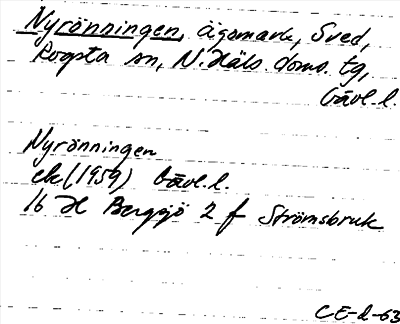 Nyrönningen, ägomark, Sved,
Rogsta sn, N. Häls. doms. tg,
Gävl. l.
Nyrönningen
ek (1959) Gävl. l.
16 H Bergsjö 2 f Strömsbruk
CE-d-63